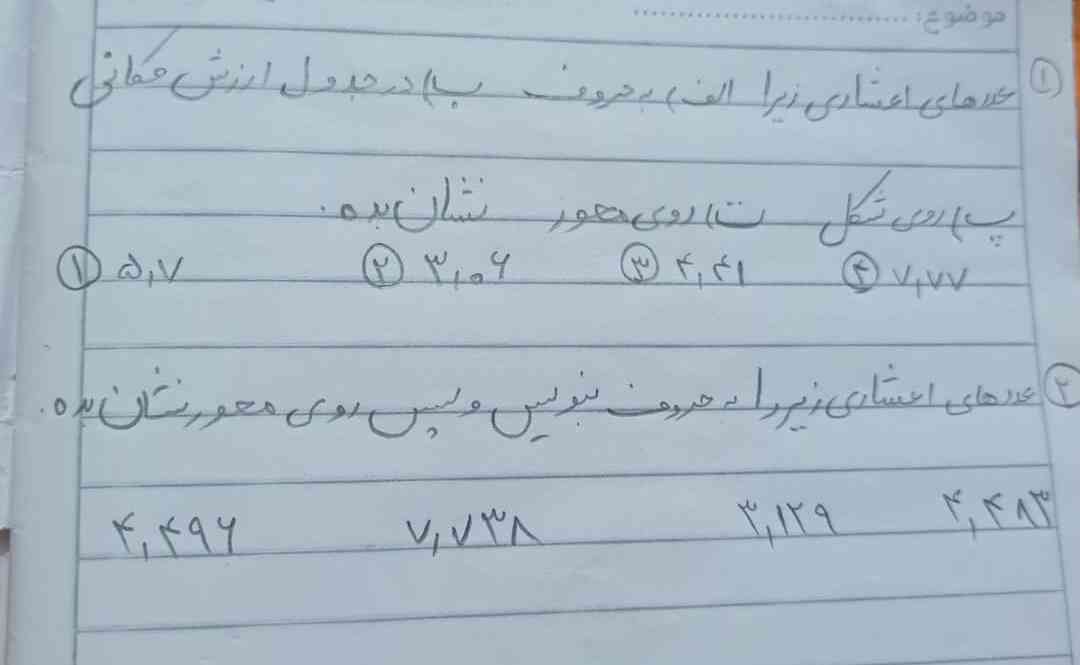 موضوع: ..............................
① عددهای اعشاری زیر را الف) به حروف ب) در جدول ارزش مکانی
پ) روی شکل ت) روی محور نشان بده.
① ۵,۷ ② ۳,۰۶ ③ ۴,۴۱ ④ ۷,۷۷
② عددهای اعشاری زیر را به حروف بنویس و سپس روی محور نشان بده.
۴,۴۹۶ ۷,۷۳۸ ۳,۱۲۹ ۴,۴۸۳